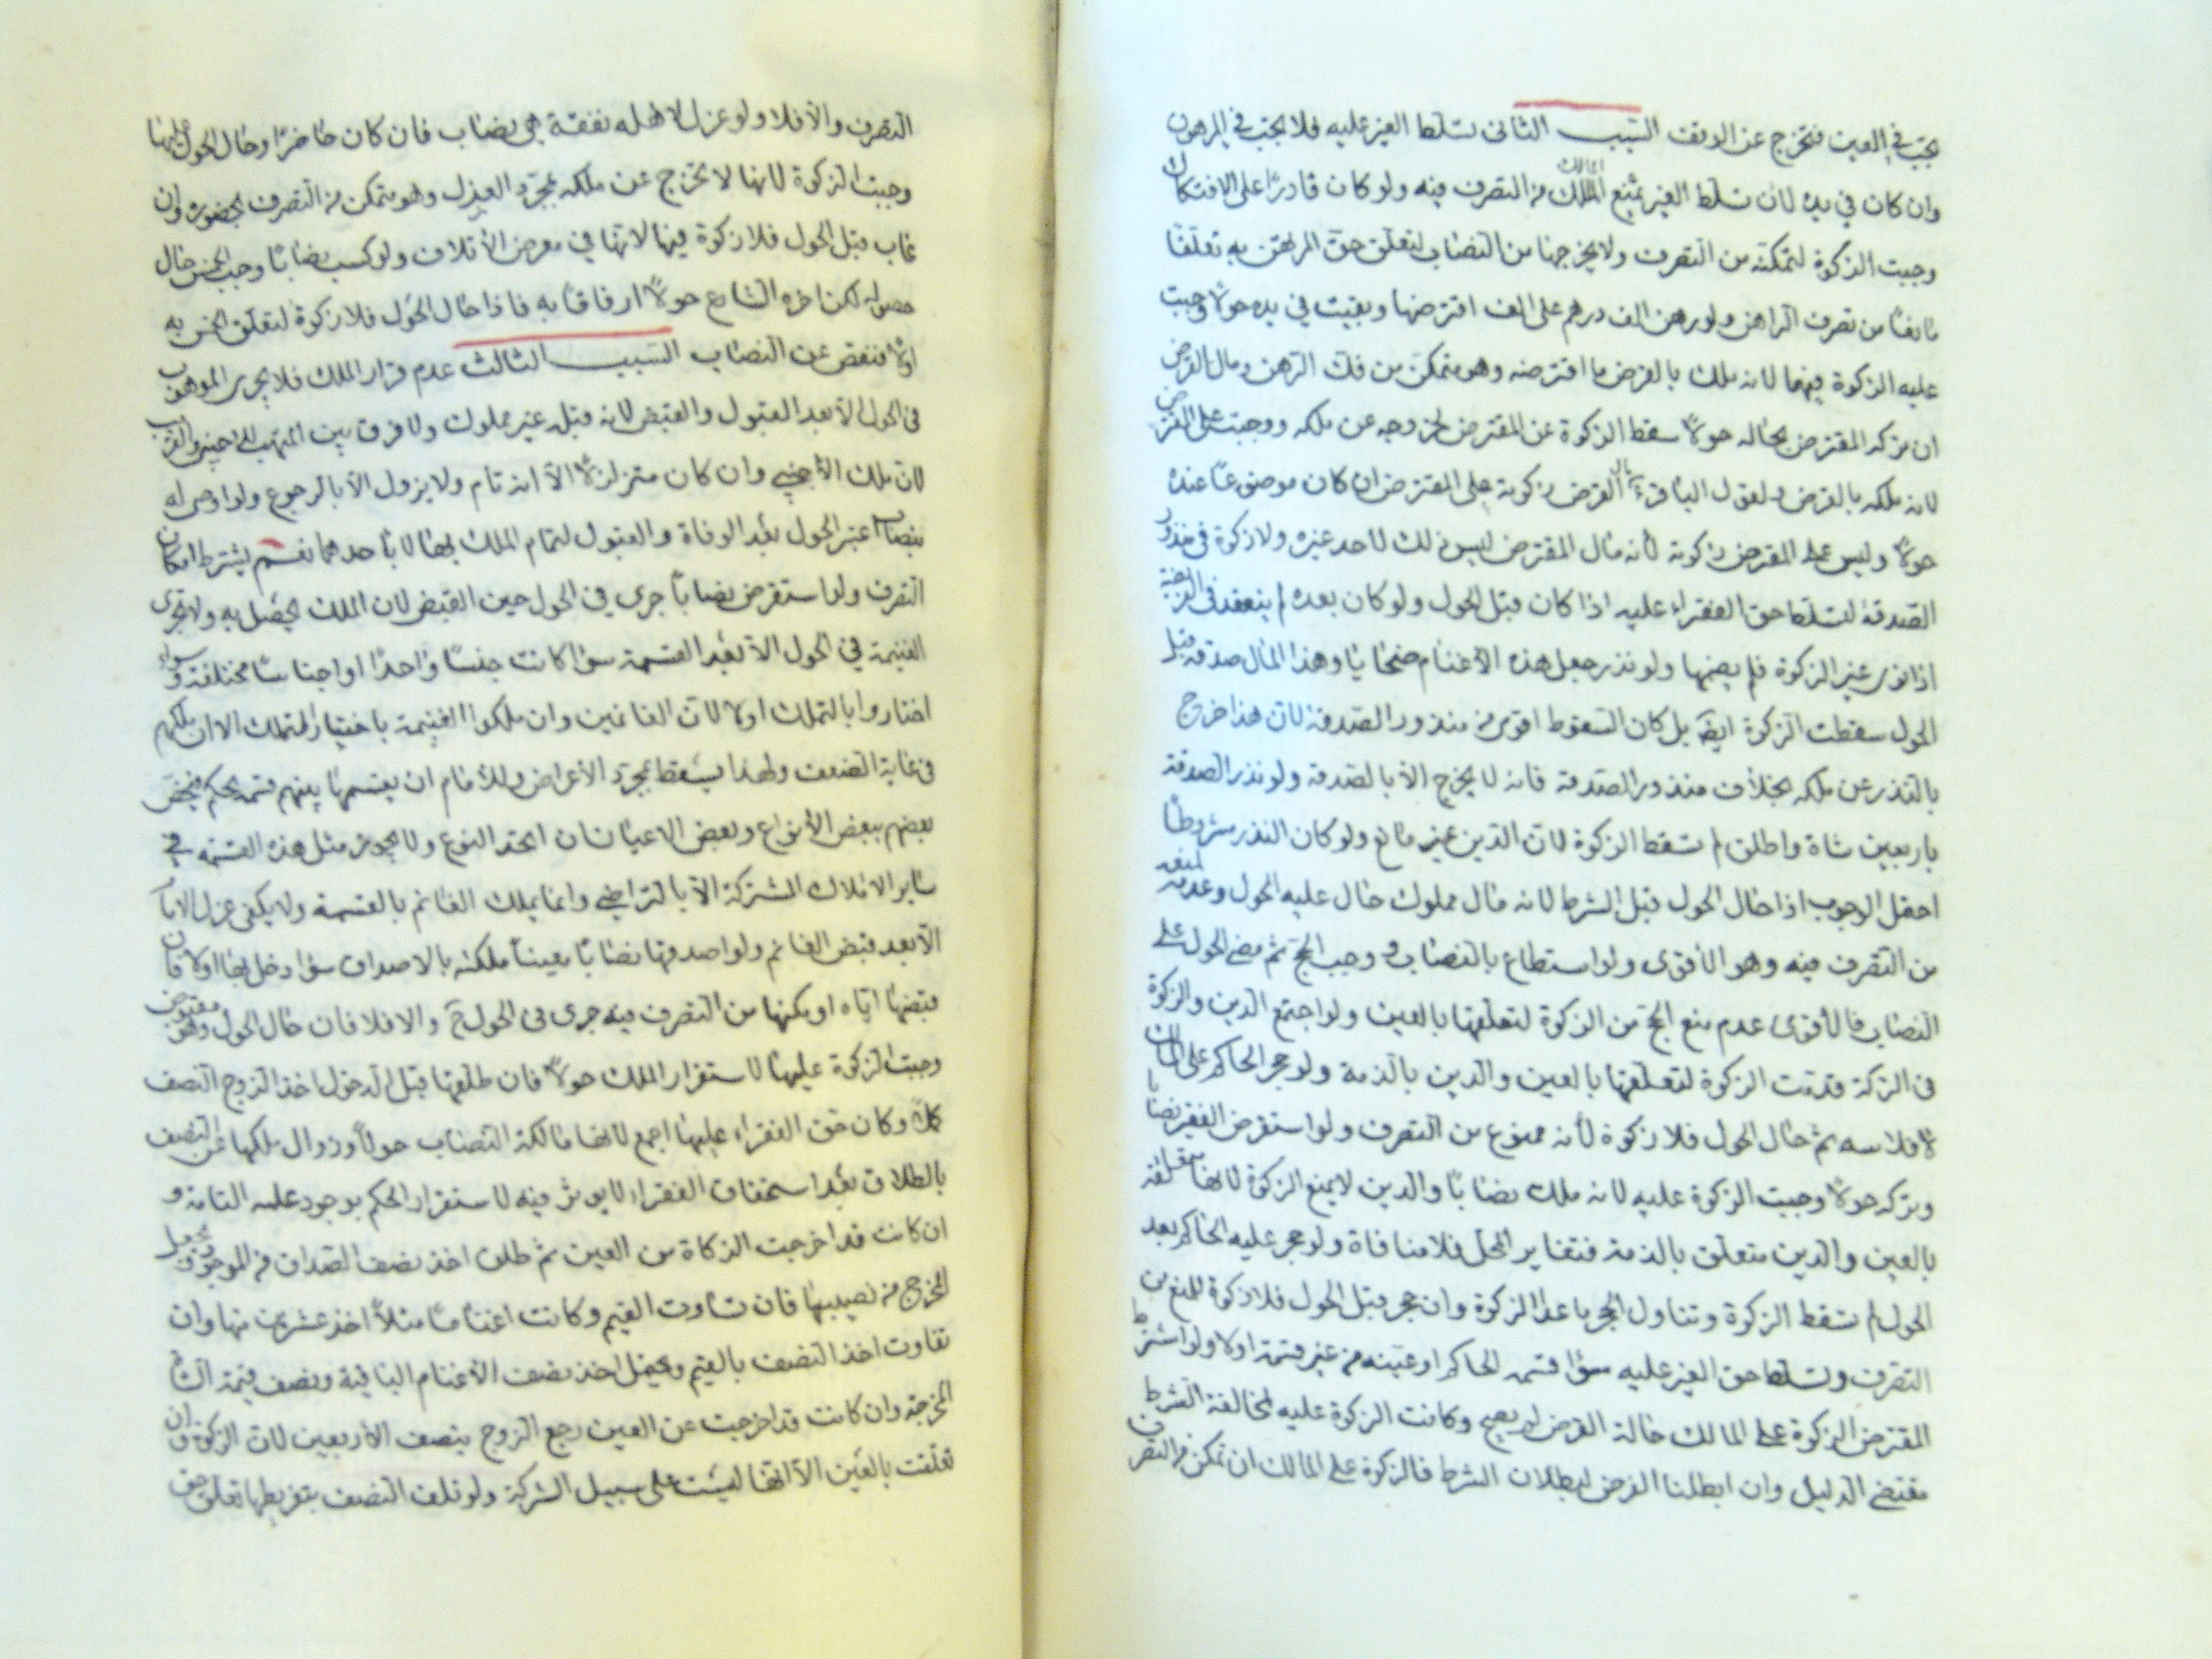 تجب في العين فتخرج عن الوقف السبب الثانى تسلط الغير عليه فلا تجب في المرهون
وان كان في يده لان تسلط الغير يمنع المالك من التصرف فيه ولو كان قادرًا على الافتكاك
وجبت الزكوة لتمكنه من التصرف ولا يخرجها من النصاب لتعلق حق المرتهن به تعلقا
مانعا من تصرف الراهن ولو رهن الف درهم على الف اقترضها وبقيت في يده حولًا وجبت
عليه الزكوة فيهما لانه ملك بالقرض ما اقترضه وهو متمكن من فك الرهن ومال القرض
ان تركه المقترض بحاله حولًا سقط الزكوة عن المقرض لخروجه عن ملكه ووجبت على المقترض
لانه ملكه بالقرض ولقول الباقر زكوة القرض على المقترض ان كان موضوعًا عنده
حولًا وليس على المقرض زكوته لأنه مال المقترض ليس ذلك لاحد غيره ولا زكوة في منذور
الصدقة لتسلط حق الفقراء عليه اذا كان قبل الحول ولو كان بعده لم ينعقد في الفريضة
اذا نوى غير الزكوة فلم يضمنها ولو نذر جعل هذه الأغنام ضحايا وهذا المال صدقة قبل
الحول سقطت الزكوة ايض بل كان السقوط اقوى من منذور الصدقة لان هذا خرج
بالنذر عن ملكه بخلاف منذور الصدقة فانه لا يخرج الا بالصدقة ولو نذر الصدقة
باربعين شاة واطلق لم تسقط الزكوة لان الدين غير مانع ولو كان النذر مشروطًا
احتمل الوجوب اذا حال الحول قبل الشرط لانه مال مملوك حال عليه الحول وعدمه لمنعه
من التصرف فيه وهو الأقوى ولو استطاع بالنصاب و وجب الحج ثم مضى الحول على
النصاب فالأقوى عدم منع الحج من الزكوة لتعلقها بالعين ولو اجتمع الدين والزكوة
فى التركة قدمت الزكوة لتعلقها بالعين والدين بالذمة ولو حجر الحاكم على المالك
لافلاسه ثم حال الحول فلا زكوة لأنه ممنوع من التصرف ولو استقرض الفقير نصابا
وتركه حولًا وجبت الزكوة عليه لانه ملك نصابًا والدين لا يمنع الزكوة لانها متعلقة
بالعين والدين متعلق بالذمة فتغاير المحل فلا منافاة ولو حجر عليه الحاكم بعد
الحول لم تسقط الزكوة وتناول الحجر ما عدا الزكوة وان حجر قبل الحول فلا زكوة للمنع من
التصرف وتسلط حق الغير عليه سواء قسمه الحاكم او عينه من غير قسمة اولا ولو اشترط
المقترض الزكوة على المالك حالة القرض لم يصح وكانت الزكوة عليه لمخالفة الشرط
مقتضى الدليل وان ابطلنا القرض لبطلان الشرط فالزكوة على المالك ان تمكن من التصرف
التصرف والا فلا ولو عزل لاهله نفقة هى نصاب فان كان حاضرًا وحال الحول عليها
وجبت الزكوة لانها لا تخرج عن ملكه بمجرد العزل وهو متمكن من التصرف بحضوره وان
غاب قبل الحول فلا زكوة فيها لانها في معرض الأتلاف ولو كسب نصابًا وجب الخمس حال
حصوله لكن اخره الشارع حولًا ارفاقا به فاذا حال الحول فلا زكوة لتعلق الخمس به
اولا فنقص عن النصاب السبب الثالث عدم قرار الملك فلا يجرى الموهوب
فى الحول الا بعد القبول والقبض لانه قبله غير مملوك ولا فرق بين المتهب الاجنبى والقريب
لان ملك الأجنبي وان كان متزلزلًا الا انه تام ولا يزول الا بالرجوع ولو اوصى له
بنصاب اعتبر الحول بعد الوفاة والقبول لتمام الملك بهما لا باحدهما نعم يشترط امكان
التصرف ولو استقرض نصابًا جرى في الحول حين القبض لان الملك يحصل به ولا تجرى
الغنيمة في الحول الا بعد القسمة سواء كانت جنسًا واحدًا او اجناسًا مختلفة وسواء
اختاروا بالتملك اولا لان الغانمين وان ملكوا الغنيمة باختيار التملك الا ان ملكهم
فى غاية الضعف ولهذا يسقط بمجرد الأعراض وللأمام ان يقسمها بينهم قسمة تحكم فيخص
بعضهم ببعض الأنواع وبعض الاعيان ان اتحد النوع ولا يجوز مثل هذه القسمة في
ساير الاملاك المشتركة الا بالتراضي وانما يملك الغانم بالقسمة ولا يكفى عزل الامام
الا بعد قبض الغانم ولو اصدقها نصابًا معينًا ملكته بالاصداق سواء دخل بها اولا فان
قبضها اياه او مكنها من التصرف فيه جرى فى الحول والا فلا فان حال الحول وهو مقبوض
وجبت الزكوة عليها لاستقرار الملك حولًا فان طلقها قبل الدخول اخذ الزوج النصف
كملا وكان حق الفقراء عليها اجمع لانها مالكة النصاب حولًا وزوال ملكها عن النصف
بالطلاق بعد استحقاق الفقراء لا يوثر فيه لاستقرار الحكم بوجود علته التامة و
ان كانت قد اخرجت الزكاة من العين ثم طلق اخذ نصف الصداق من الموجود ويجعل
المخرج من نصيبها فان تساوت القيم وكانت اغنامًا مثلًا اخذ عشرين منها وان
تفاوت اخذ النصف بالقيم ويحتمل اخذ نصف الأغنام الباقية ونصف قيمة الشاة
المخرجة وان كانت قد اخرجت عن العين رجع الزوج بنصف الأربعين لان الزكوة وان
تعلقت بالعين الا انها ليست على سبيل الشركة ولو تلف النصف بتفريطها تعلق حق